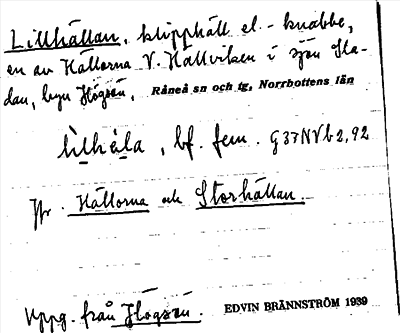 Lillhällan, klipphäll el. - knabbe,
en av Hällorna V. Hällviken i sjön Sla-
dan, byn Högsön, Råneå sn och tg, Norrbottens län
lìlhäla, bf. fem. G 37 N V b 2, 92
Jfr. Hällorna och Storhällan.
Uppg. från Högsön. EDVIN BRÄNNSTRÖM 1939